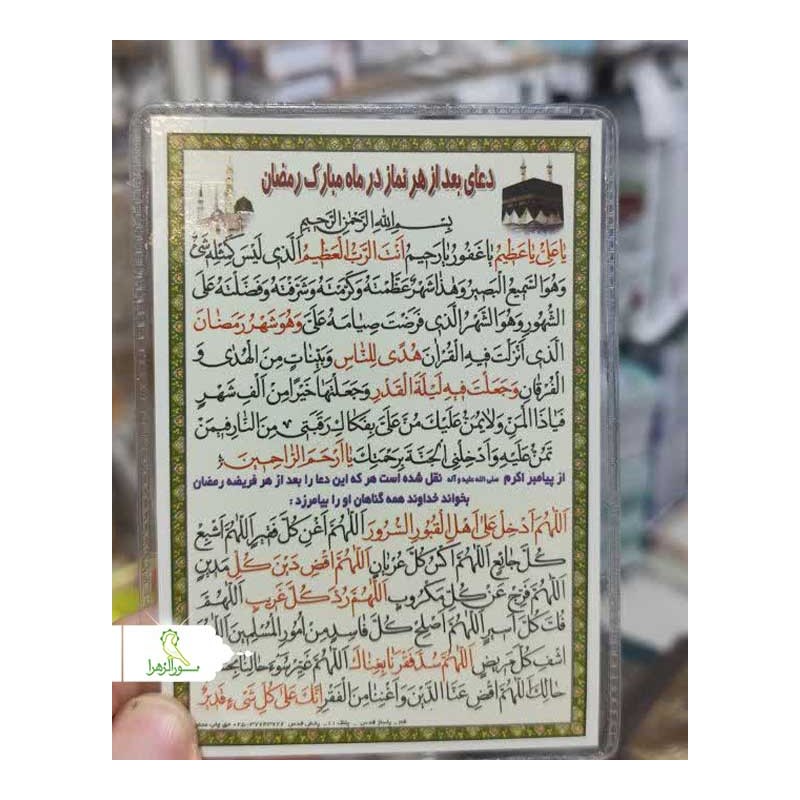 دعای بعد از هر نماز در ماه مبارک رمضان
بِسْمِ اللهِ الرَّحْمٰنِ الرَّحِيمِ
يا عَلِيُّ يا عَظِيمُ يا غَفُورُ يا رَحِيمُ اَنْتَ الرَّبُّ الْعَظِيمُ الَّذِي لَيْسَ كَمِثْلِهِ شَيْءٌ
وَهُوَ السَّمِيعُ الْبَصِيرُ وَهٰذا شَهْرٌ عَظَّمْتَهُ وَكَرَّمْتَهُ وَشَرَّفْتَهُ وَفَضَّلْتَهُ عَلَى
الشُّهُورِ وَهُوَ الشَّهْرُ الَّذِي فَرَضْتَ صِيامَهُ عَلَيَّ وَهُوَ شَهْرُ رَمَضانَ
الَّذِي اَنْزَلْتَ فِيهِ الْقُرْانَ هُدًى لِلنّاسِ وَبَيِّناتٍ مِنَ الْهُدٰى وَ
الْفُرْقانِ وَجَعَلْتَ فِيهِ لَيْلَةَ الْقَدْرِ وَجَعَلْتَها خَيْرًا مِنْ اَلْفِ شَهْرٍ
فَيا ذَا الْمَنِّ وَلا يُمَنُّ عَلَيْكَ مُنَّ عَلَيَّ بِفَكاكِ رَقَبَتِي مِنَ النّارِ فِيمَنْ
تَمُنُّ عَلَيْهِ وَاَدْخِلْنِي الْجَنَّةَ بِرَحْمَتِكَ يا اَرْحَمَ الرّاحِمِينَ
از پیامبر اکرم صلی الله علیه و آله نقل شده است هر که این دعا را بعد از هر فریضه رمضان
بخواند خداوند همه گناهان او را بیامرزد :
اَللّٰهُمَّ اَدْخِلْ عَلٰى اَهْلِ الْقُبُورِ السُّرُورَ اَللّٰهُمَّ اَغْنِ كُلَّ فَقِيرٍ اَللّٰهُمَّ اَشْبِعْ
كُلَّ جائِعٍ اَللّٰهُمَّ اكْسُ كُلَّ عُرْيانٍ اَللّٰهُمَّ اقْضِ دَيْنَ كُلِّ مَدِينٍ
اَللّٰهُمَّ فَرِّجْ عَنْ كُلِّ مَكْرُوبٍ اَللّٰهُمَّ رُدَّ كُلَّ غَرِيبٍ اَللّٰهُمَّ
فُكَّ كُلَّ اَسِيرٍ اَللّٰهُمَّ اَصْلِحْ كُلَّ فاسِدٍ مِنْ اُمُورِ الْمُسْلِمِينَ
اشْفِ كُلَّ مَرِيضٍ اَللّٰهُمَّ سُدَّ فَقْرَنا بِغِناكَ اَللّٰهُمَّ غَيِّرْ سُوءَ حالِنا
حالِكَ اَللّٰهُمَّ اقْضِ عَنَّا الدَّيْنَ وَاَغْنِنا مِنَ الْفَقْرِ اِنَّكَ عَلٰى كُلِّ شَيْءٍ قَدِيرٌ
قم_ پاساژ قدس _ پلاک
سورالزهرا